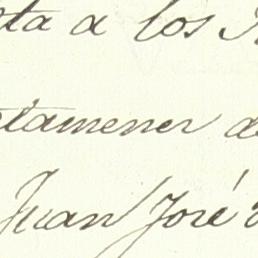 ta a los
tamener de
Juan José